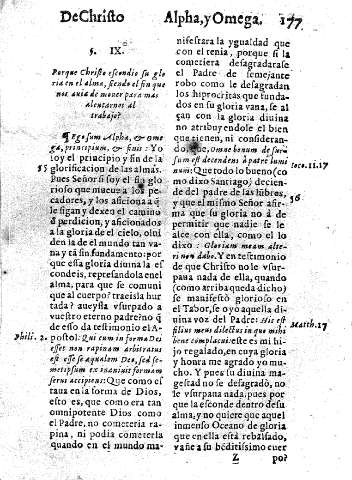 De Christo Alpha, y Omega. 177
§. IX.
Porque Christo escondio su glo
ria en el alma, siendo el fin que
nos auia de mouer para mas
alentarnos al
trabajo?
Ego sum Alpha, & ome
ga, principium, & finis: Yo
soy el principio y fin de la
55
glorificacion de las almas.
Pues Señor si soy el fin glo
rioso que mueue a los pe-
cadores, y los aficiona a q̃
le sigan y dexen el camino
d̃ perdicion, y aficionados
a la gloria de el cielo, olui
den la de el mundo tan va
na y tã sin fundamento: por
que essa gloria diuina la es
condeis, represandola en el
alma, para que se comuni
que al cuerpo? traeisla hur
tada? aueysla vsurpado a
vuestro eterno padre? no q̃
de esso da testimonio el A-
postol: Qui cum in forma Dei
Phili. 2.
esset non rapinam arbitratus
est esse se aequalem Deo, sed se-
metipsum exinaniuit formam
serui accipiens: Que como es
taua en la forma de Dios,
esto es, que como era tan
omnipotente Dios como
el Padre, no cometeria ra-
pina, ni podia cometerla
quando en el mundo ma-
nifestara la ygualdad que
con el tenia, porque si la
cometiera desagradarase
el Padre de semejante
robo como le desagradan
los hiprocritas que funda-
dos en su gloria vana, se al
çan con la gloria diuina
no atribuyendole el bien
que tienen, ni consideran-
do, que, omne bonum de sur-
sum est decendens à patre lumi
num: Que todo lo bueno (co
Iaco. 11. 17
mo dixo Santiago) decien-
de del padre de las lũbres,
56
y que el mismo Señor afir-
ma que su gloria no â de
permitir que nadie se le
alce con ella, como el lo
dixo: Gloriam meam alte-
ri non dabo. Y en testimonio
de que Christo no le vsur-
paua nada de ella, quando
(como arriba queda dicho)
se manifestò glorioso en
el Tabor, se oyo aquella di
uina voz del Padre: Hic est
filius meus dilectus in quo mihi
Matth. 17
bene complacui: este es mi hi-
jo regalado, en cuya gloria
y honra me agrado yo mu-
cho. Y pues su diuina ma-
gestad no se desagradò, no
le vsurpaua nada, pues por
que la esconde dentro de su
alma, y no quiere que aquel
inmenso Oceano de gloria
que en ella està rebalsado,
vañe a su bẽditissimo cuer
Z po?